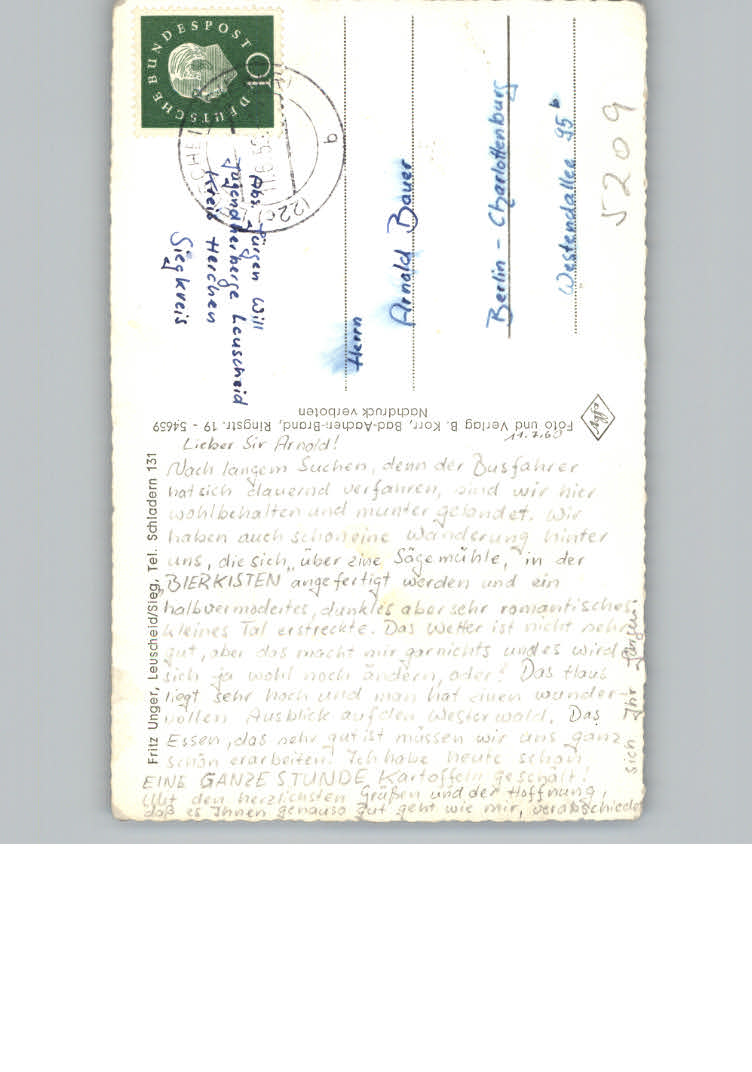 DEUTSCHE BUNDESPOST
10
(22c)
b
Abs. Jürgen Will
Jugendherberge Leuscheid
Kreis Herchen
Siegkreis
Herrn
Arnold Bauer
Berlin - Charlottenburg
Westendallee 95b
5209
Foto und Verlag B. Korr, Bad-Aachen-Brand, Ringstr. 19 - 54659
Nachdruck verboten
Fritz Unger, Leuscheid/Sieg, Tel. Schladern 131
11.7.60
Lieber Sir Arnold!
Nach langem Suchen, denn der Busfahrer
hat sich dauernd verfahren, sind wir hier
wohlbehalten und munter gelandet. Wir
haben auch schon eine Wanderung hinter
uns, die sich „über eine Sägemühle," in der
„BIERKISTEN angefertigt werden und ein
halbvermodertes, dunkles aber sehr romantisches,
kleines Tal erstreckte. Das Wetter ist nicht sehr
gut, aber das macht mir garnichts und es wird
sich ja wohl noch ändern, oder? Das Haus
liegt sehr hoch und man hat einen wunder-
vollen Ausblick auf den Westerwald. Das
Essen, das sehr gut ist müssen wir uns ganz
schön erarbeiten! Ich habe heute schon
EINE GANZE STUNDE Kartoffeln geschält!
Mit den herzlichsten Grüßen und der Hoffnung,
daß es Ihnen genauso gut geht wie mir, verabschiedet
sich Ihr Jürgen.